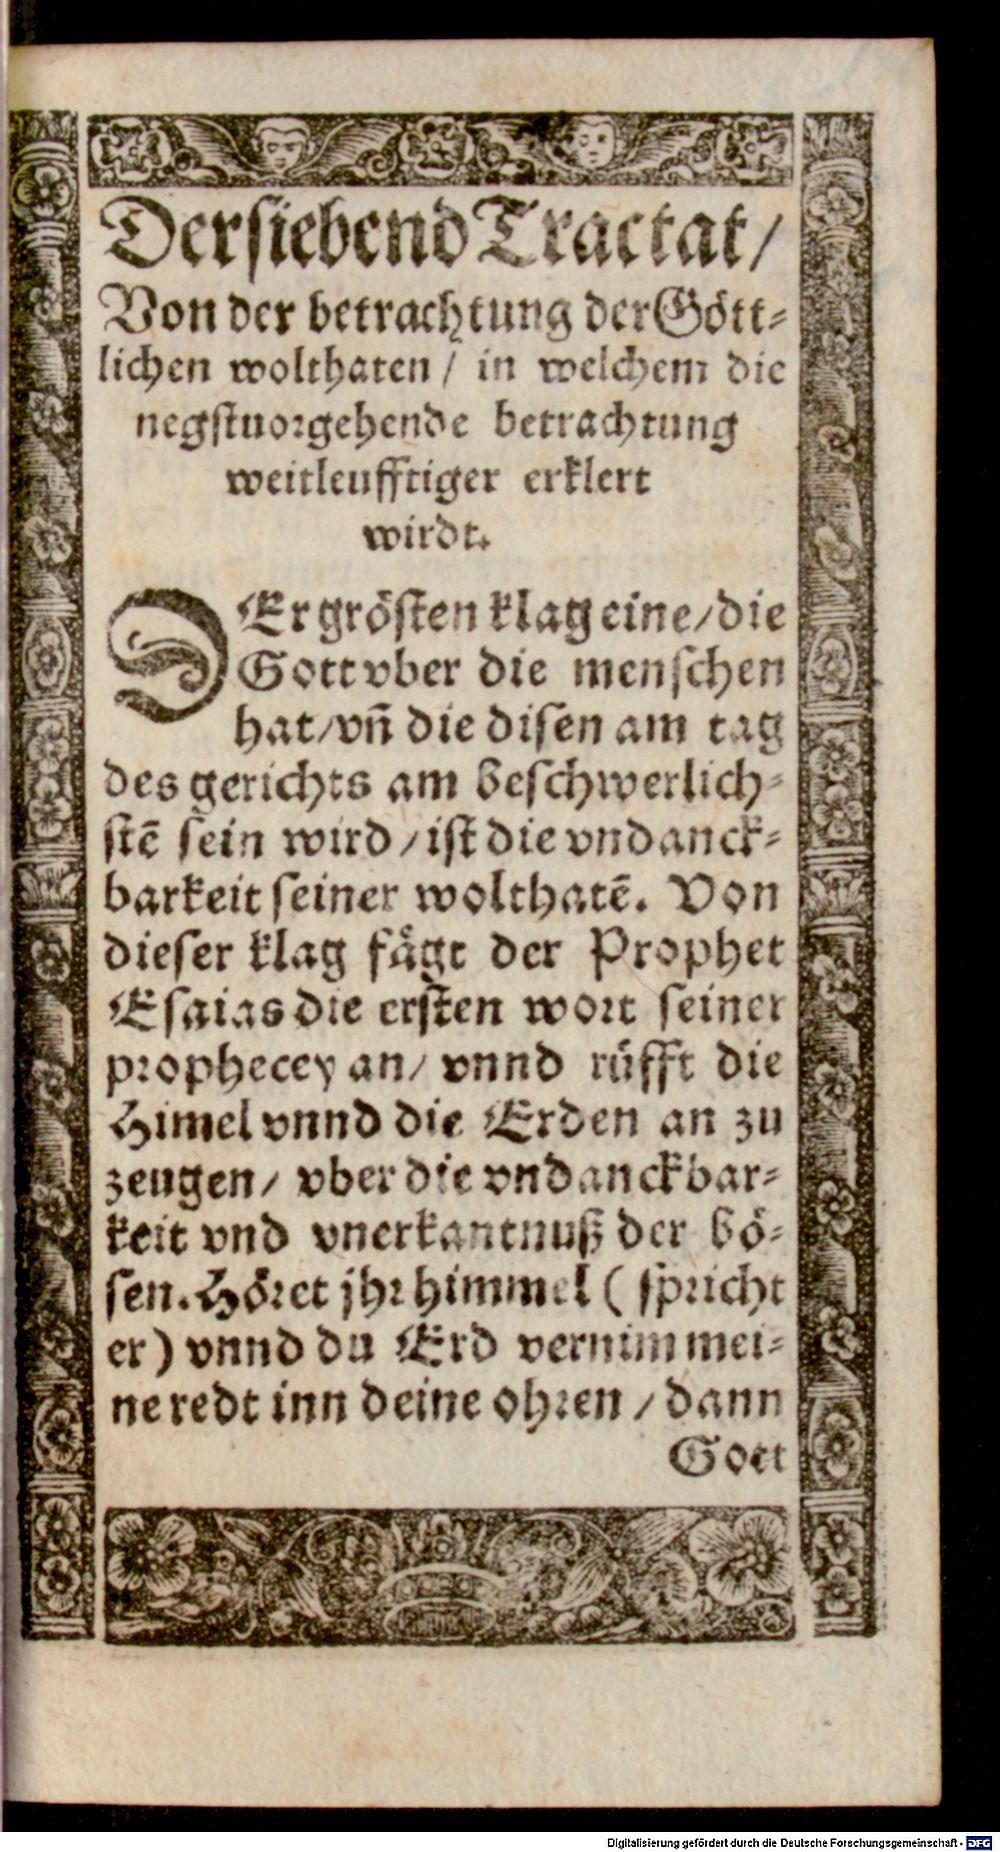 Der siebend Tractat/
Von der betrachtung der Gött-
lichen wolthaten / in welchem die
negstuorgehende betrachtung
weitleufftiger erklert
wirdt.
DEr grösten klag eine/die
Gott vber die menschen
hat/vñ die disen am tag
des gerichts am beschwerlich-
stē sein wird/ist die vndanck-
barkeit seiner wolthatē. Von
dieser klag fägt der Prophet
Esaias die ersten wort seiner
prophecey an/ vnnd rüfft die
Himel vnnd die Erden an zu
zeugen/ vber die vndanckbar-
keit vnd vnerkantnuß der bö-
sen. Höret jhr himmel ( spricht
er) vnnd du Erd vernim mei-
ne redt inn deine ohren / dann
Gott
Digitalisierung gefördert durch die Deutsche Forschungsgemeinschaft - DFG